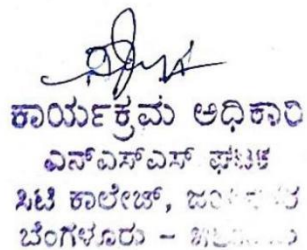 ಕಾರ್ಯಕ್ರಮ ಅಧಿಕಾರಿ
ಎನ್ಎಸ್ಎಸ್ ಘಟಕ
ಸಿಟಿ ಕಾಲೇಜ್,
ಬೆಂಗಳೂರು -